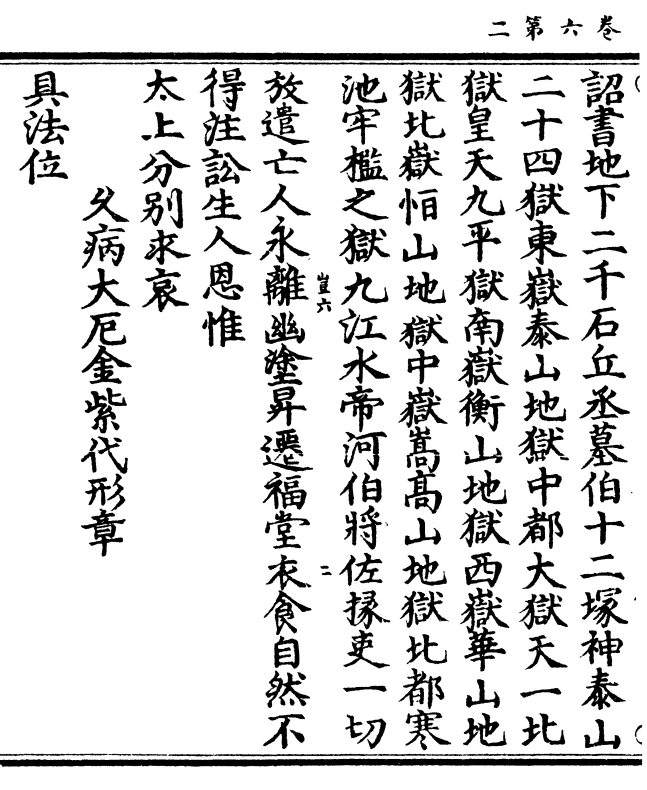 二第六卷
詔書地下二千石丘丞墓伯十二塚神泰山
二十四獄東嶽泰山地獄中都大獄天一北
獄皇天九平獄南嶽衡山地獄西嶽華山地
獄北嶽恒山地獄中嶽嵩高山地獄北都寒
池牢檻之獄九江水帝河伯將佐掾吏一切
豈六
二
放遣亡人永離幽塗昇遷福堂衣食自然不
得注訟生人恩惟
太上分别求哀
久病大厄金紫代形章
具法位